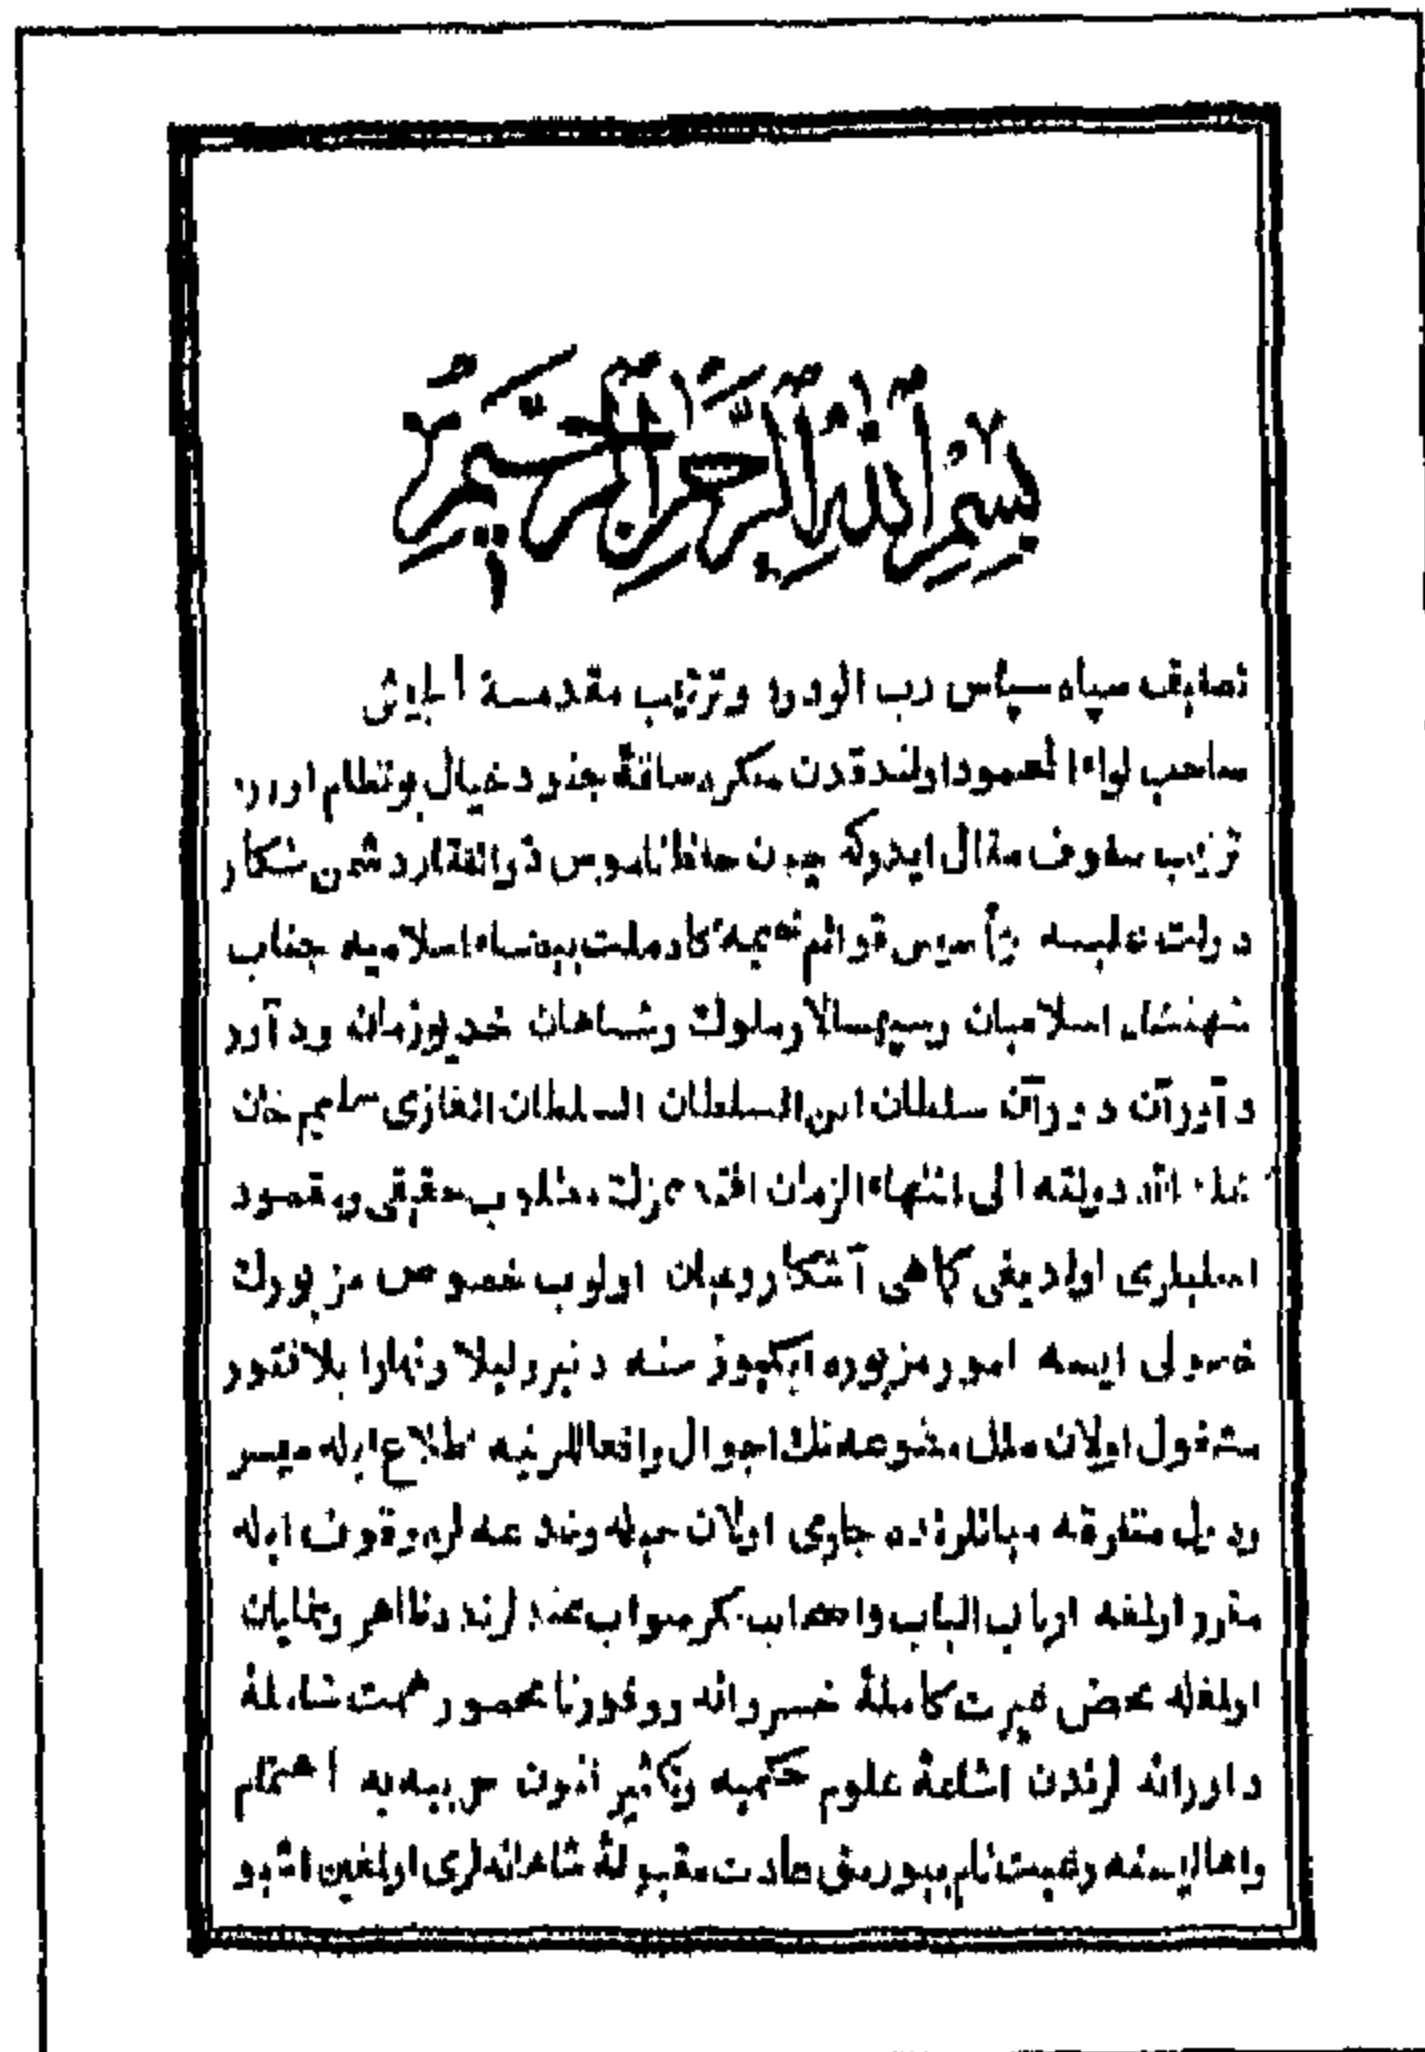 بِسْمِ اللهِ الرَّحْمٰنِ الرَّحِيمِ
سپاه سپاس رب الودود وترتيب مقدمة الجيش
صاحب لواء المحمود اولندقدن صكره ساقۀ جنود خيال بو نظام اوزره
ترتيب صفوف مقال ايدركه چون حافظ ناموس ذو الفقار دشمن شكار
دولت عليه تأسيس قوائم ملت بيضاء اسلاميه جناب
شهنشاه اسلاميان وسپهسالار ملوك وشاهان خديو زمان ودآور
دآوران دورآن سلطان ابن السلطان السلطان الغازى سليم خان
الله دولته الى انتهاء الزمان افندمزك مطلوب حقيقى ومقصود
اصليلرى اولديغى كاهى آشكار وعيان اولوب خصوص مزبورك
حصولى ايسه امور مزبوره ايكيوز سنه دنبرو ليلا ونهارا بلا فتور
مشغول اولان ملل متنوعه نك احوال وافعاللرينه اطلاع ايله ميسر
ودول متفرقه ميانلرنده جارى اولان حيله وخدعه لره وقوف ايله
مقرر اولمغه ارباب الباب واصحاب فكر صواب عندلرنده ظاهر ونمايان
اولمغله محض غيرت كاملۀ خسروانه ووفور نامحصور همت شاملۀ
داورانه لرندن اشاعۀ علوم حكميه وتكثير فنون حربيه يه اهتمام
واهاليسنه رغبت تام بيورمق عادت مقبولۀ شاهانه لرى اولمغين اشبو